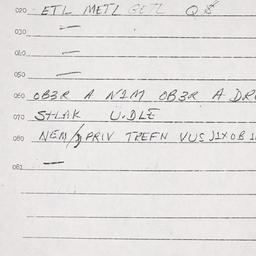 020 ETL METL GETL Q $
030 —
040 —
050 —
060 OB3R A N1M OB3R A DR
070 STLAK U.DLE
080 NEM/ PRIV TREFN VUS J1X OB
081 —